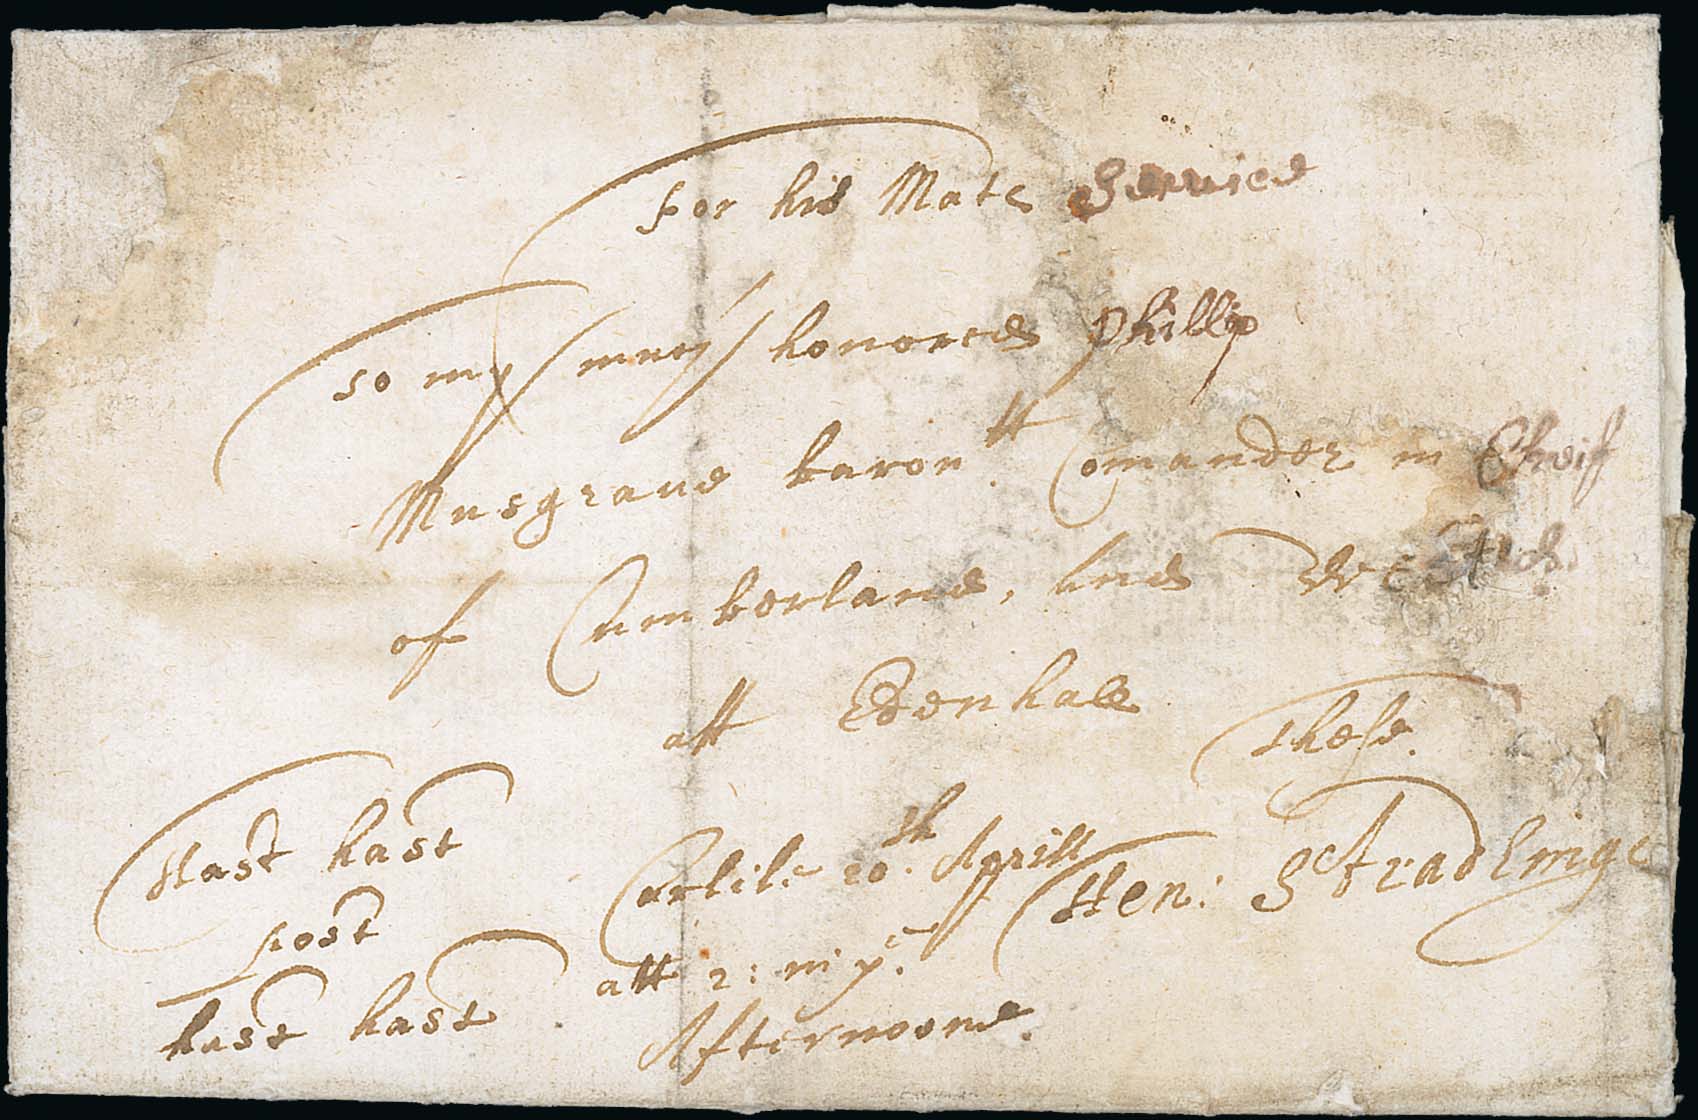 For his Mats Service
To my much honored Phillip
Musgrave baron tt Comander in Cheif
of Cumberland, and West
att Edenhall
These.
Hast hast
post
hast hast
Carlile 20th. Aprill
att 2: in ye.
Afternoone.
Hen: Stradlinge